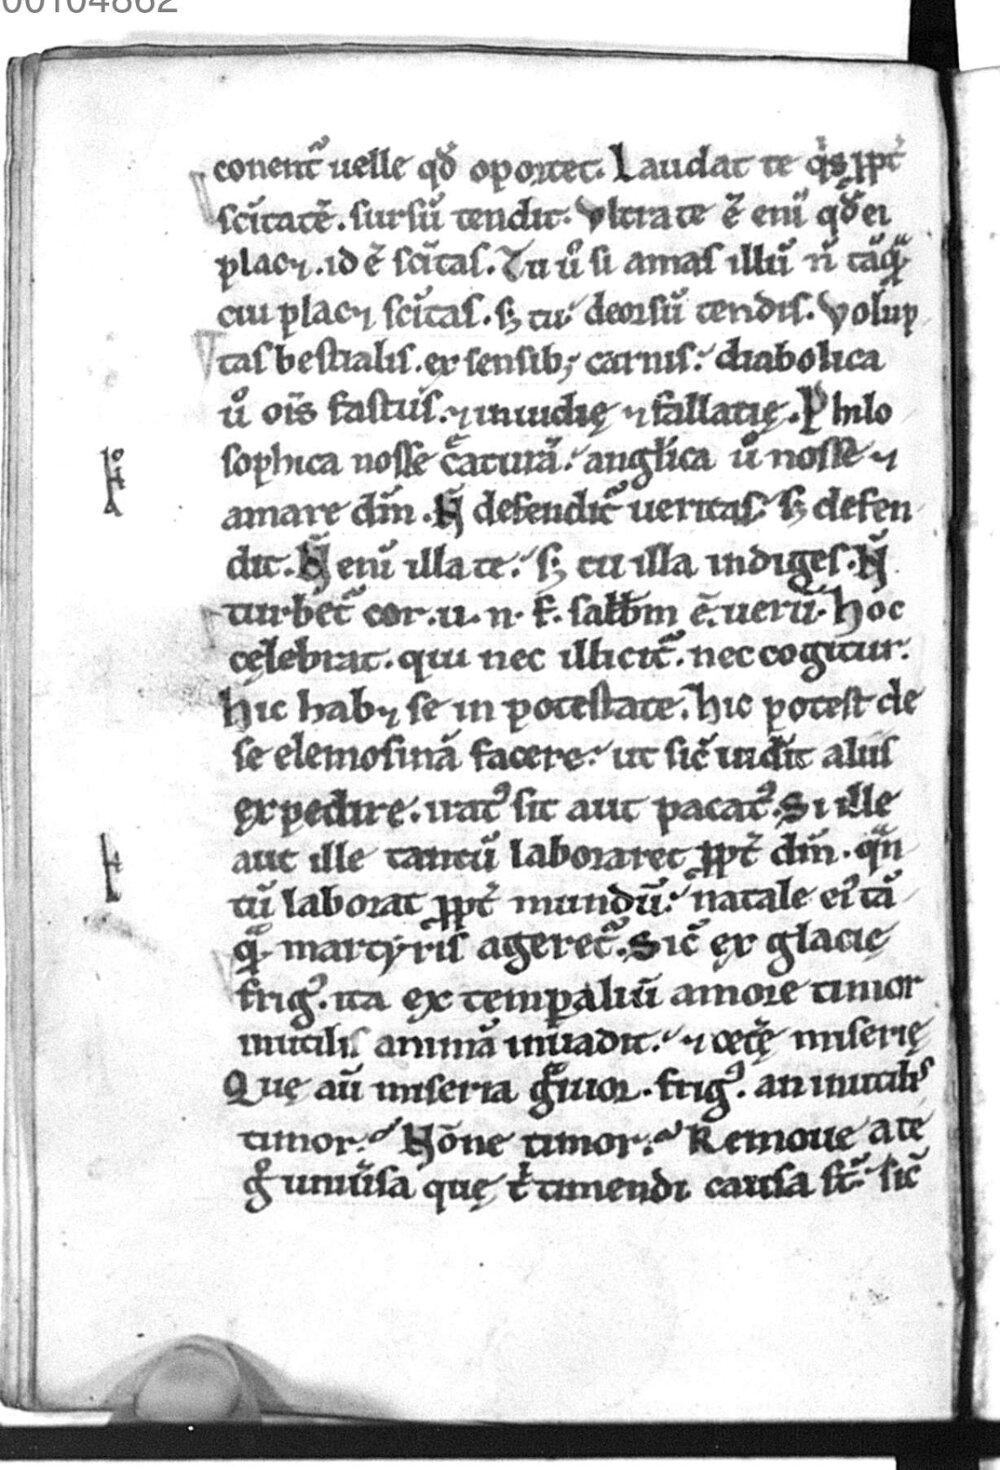 00104862
conent᷑ uelle qđ oportet. Laudat te q̇s ꝓpt̉
sc̄itatē. sursū tendit. Vltra te ē eni̅ qđ ei
placꝫ. id ē sc̄itas. Tu u̾ si amas illū n̄ tāq̄
cui placꝫ sc̄itas. sꝫ tu deorsū tendis. Volup
tas bestialis. ex sensibꝫ carnis. diabolica
u̾ oīs fastus. ⁊ inuidię ⁊ fallacię. Philo
sophica nosse c̾aturā. anglica u̾ nosse ⁊
amare dm̄. N̄ defendit᷑ ueritas. sꝫ defen
dit. N̄ eni̅ illa te. sꝫ tu illa indiges. N̄
turbet᷑ cor. u. n. f. salƀm ē. ueru̅. Hoc
cęlebrat. qui nec illicit᷑. nec cogitur.
Hic habꝫ se in potestate. hic potest de
se elemosinā facere. ut sic̄ uidit aliis
expedire. iratꝰ sit aut pacatꝰ. Si ille
aut ille tantū laboraret ꝓpt̉ dm̄. qn̄
tū laborat ꝓpt̉ mundū. natale ei᷑ tā
q̄ martyris ageret᷑. Sic̄ ex glacie
frigꝰ. ita ex temꝑaliū amore timor
inutilis animā inuadit. ⁊ cet̉ę miserię
Quę aū miseria g̾uior. frigꝰ. an inutilis
timor. Nōne timor. Remoue a te
g̊ uniu̾sa quę t̉ timendi causa st̄. sic̄